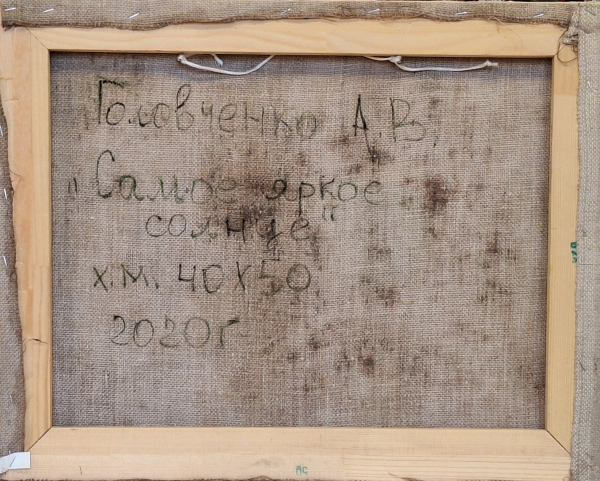 Головченко А.В.
"Самое яркое
солнце"
х.м. 40х50
2020г
АС